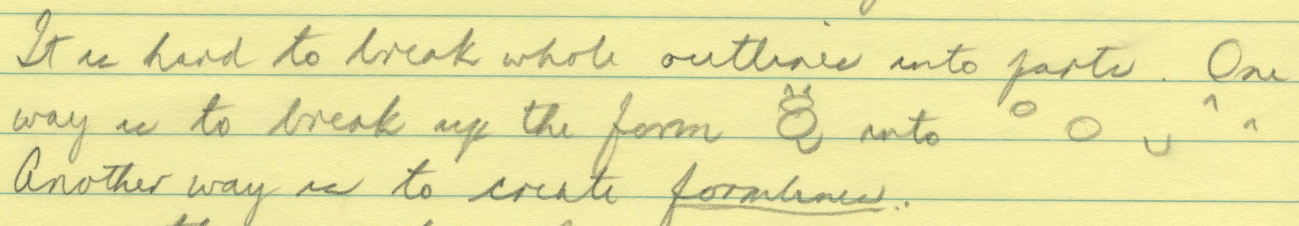 It is hard to break whole outlines into parts. One
way is to break up the form into
Another way is to create formlines.